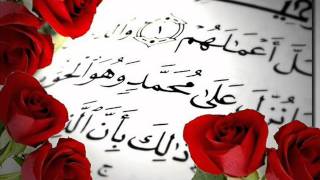 أَعْمَٰلَهُمْ ١ وَٱلَّ
نُزِّلَ عَلَىٰ مُحَمَّدٍ وَهُوَ ٱلْحَقُّ
ذَٰلِكَ بِأَنَّ ٱلَّ